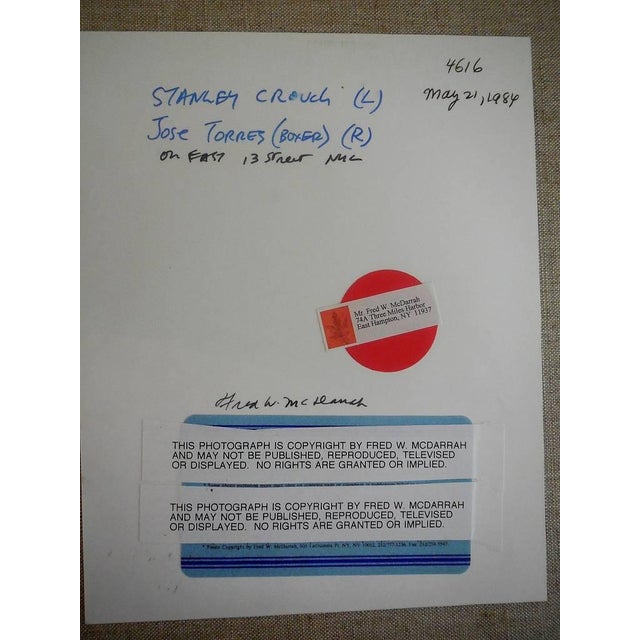 4616
May 21, 1984
STANLEY CROUCH (L)
JOSE TORRES (BOXER) (R)
ON EAST 13 STREET NYC
Mr. Fred W. McDarrah
74A Three Miles Harbor
East Hampton, NY 11937
Fred W. McDarrah
THIS PHOTOGRAPH IS COPYRIGHT BY FRED W. MCDARRAH
AND MAY NOT BE PUBLISHED, REPRODUCED, TELEVISED
OR DISPLAYED. NO RIGHTS ARE GRANTED OR IMPLIED.
THIS PHOTOGRAPH IS COPYRIGHT BY FRED W. MCDARRAH
AND MAY NOT BE PUBLISHED, REPRODUCED, TELEVISED
OR DISPLAYED. NO RIGHTS ARE GRANTED OR IMPLIED.
* Photo Copyright by Fred W. McDarrah, NY, NY 10012,